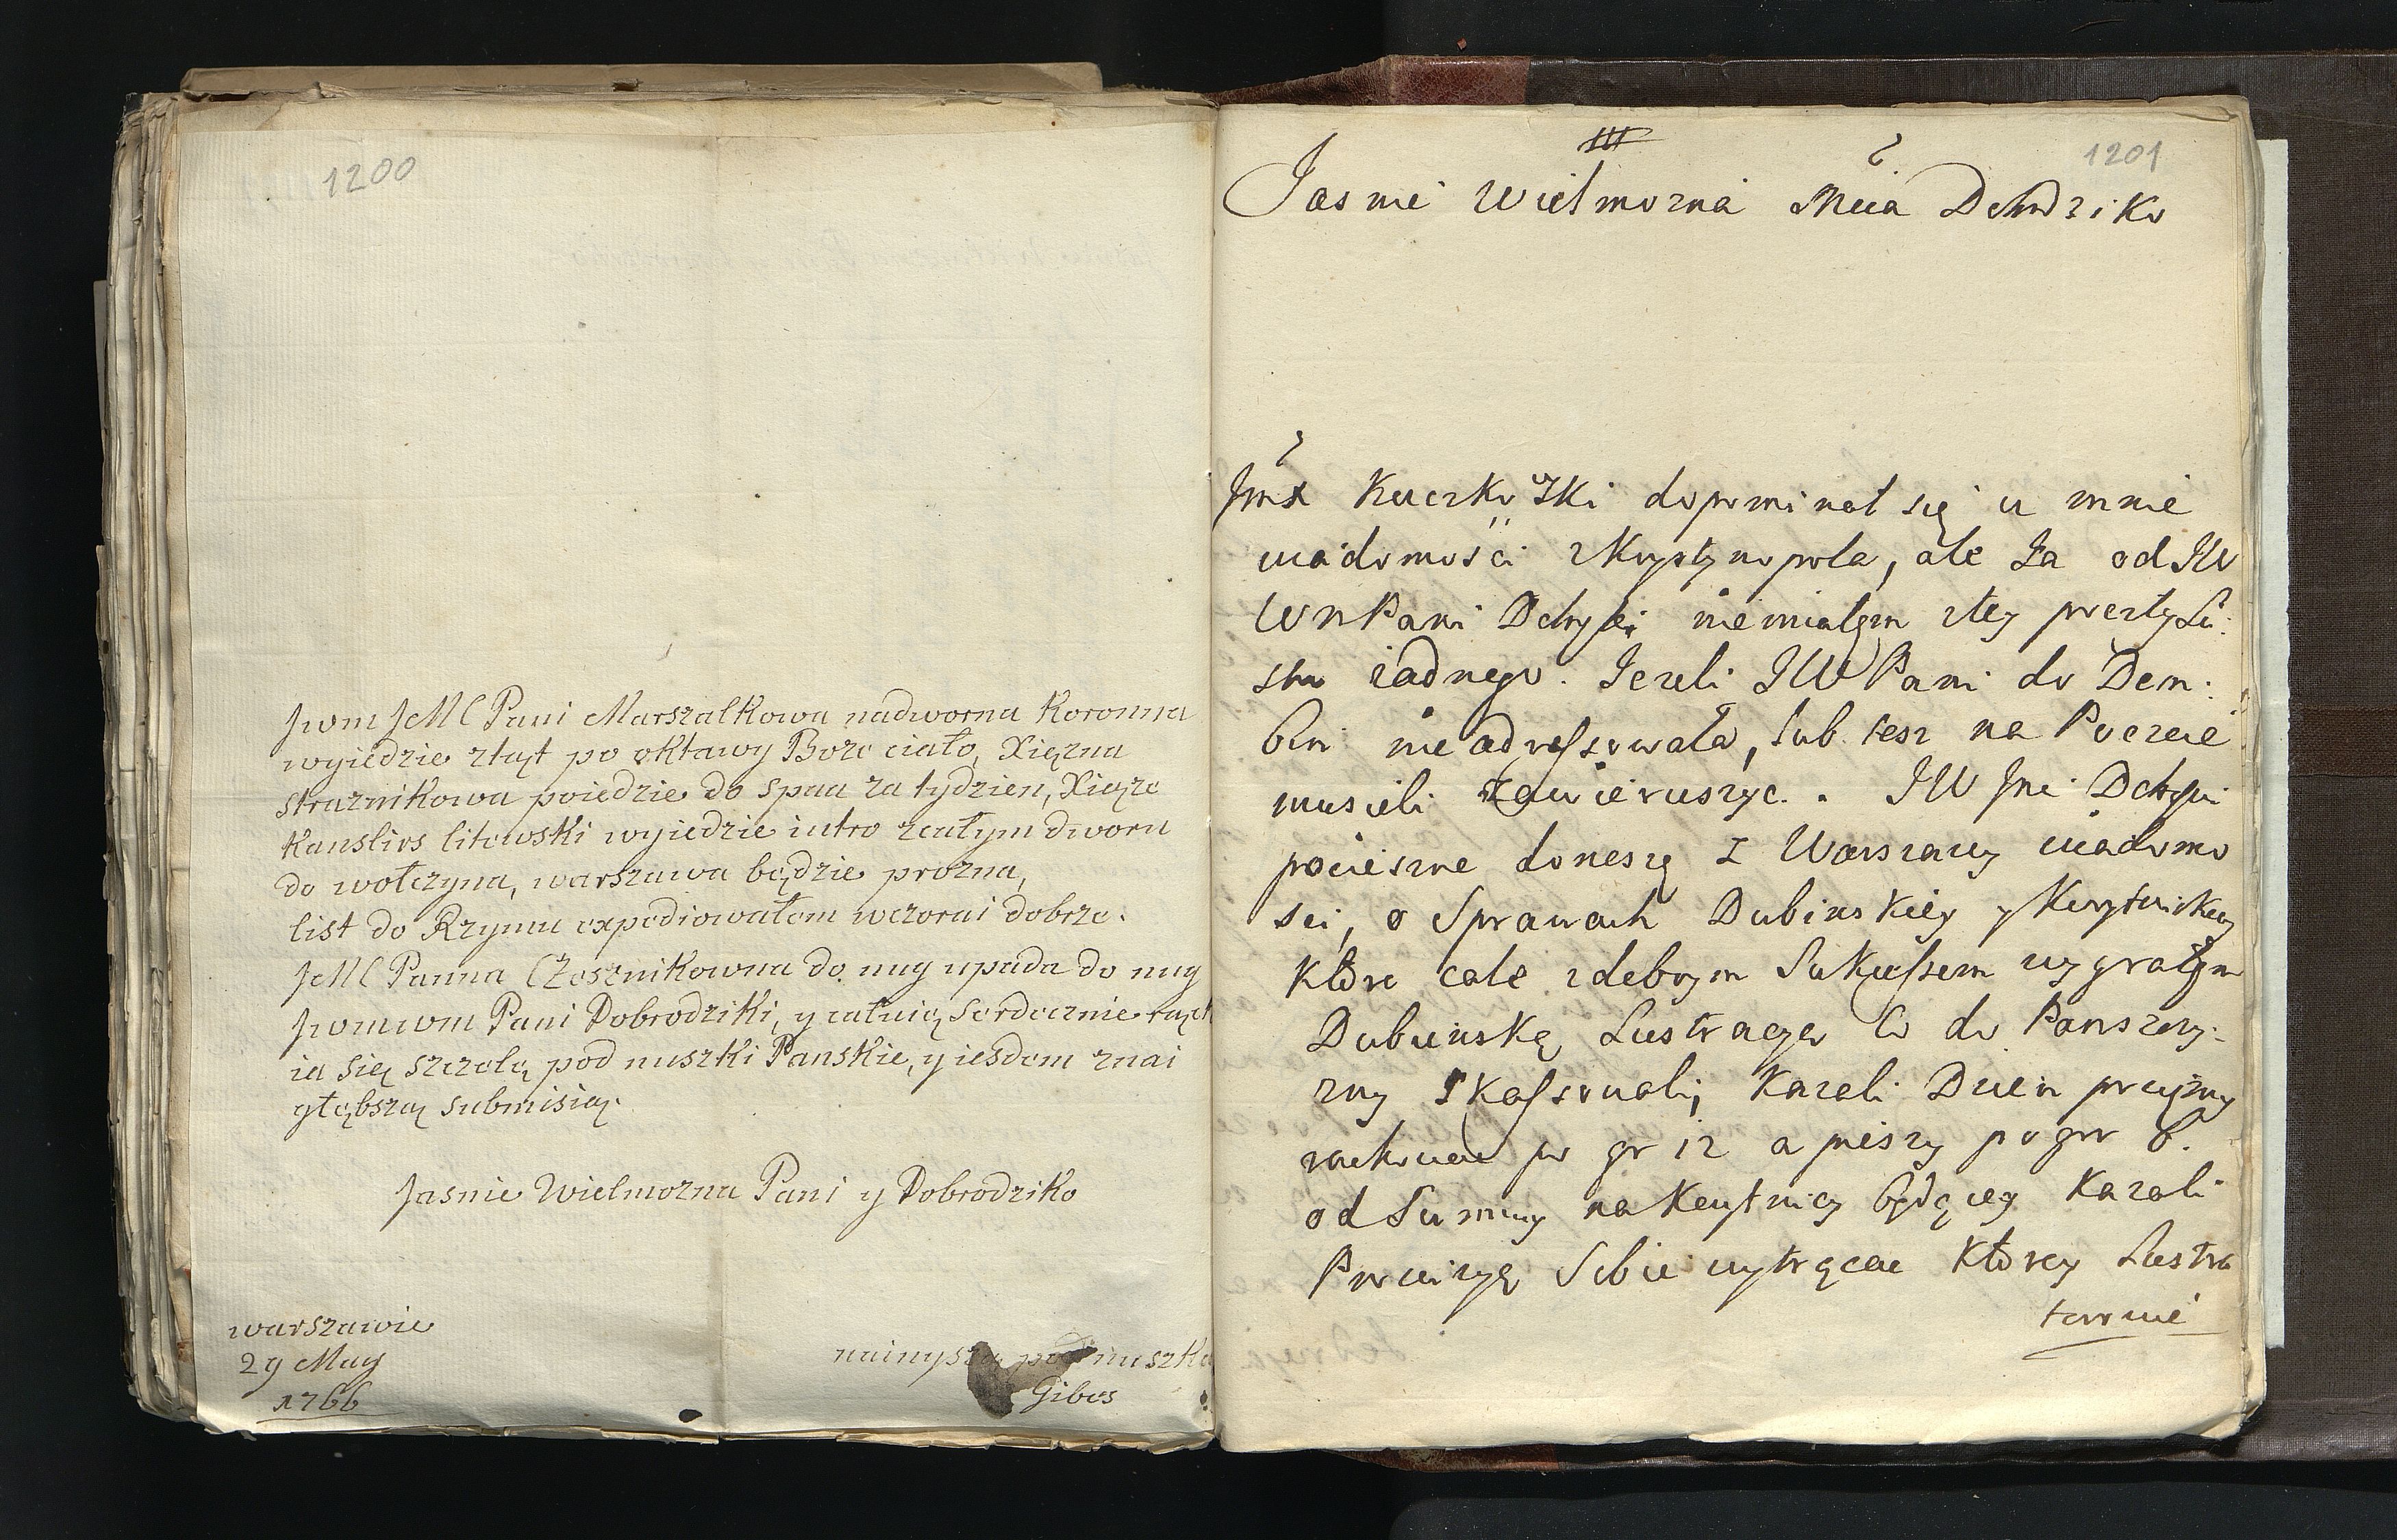 1200
JWM JeMC Pani Marszalkowa nadworna Koronna
wyiedzie ztąt po oktawy Boze ciało, Xięzna
strażnikowa poiedzie do spaa za tydzien, Xiąze
Kanslirs litewski wyiedzie iutro zcałym dworu
do wołczyna, warszawa bądzie prozna,
list do Rzymu expediowałem wczorai dobrze.
JeMC Panna Czesznikowna do nug upada do nug
JWMWM Pani Dobrodziki, y całuię serdecznie rącz
ia się szczelę pod nuszki Panskie, y iesdem znai
głębszą submisią.
Jasnie Wielmozna Pani y Dobrodziko
warszawie
29 May
1766
nainyszy pod nuszka
Gibes
1201
Jasnie Wielmozna Mcia Dobrodziko
Kuczkowski dopominał się u mnie
wiadomosci z Krystynopola, ale Ia od JW
WM Pani Dobrodziki niemiałem tey
zadnego. Iezeli JW Pani do Dem:
bin nie adressowała, lub tesz na Poczcie
musieli zawieruszyc. JW Dobrodziki
pocieszne doneszę z Warszawy wiadomo
sci, o Sprawach Dubinskiey y Korytnickiey
Ktore cale zdobrym Sukcessem wygrałem
Dubinską Lustracye Co do Panszczy:
zny Skassowali, Kazali Dzien
rachowac po gr 12 a pieszy po gr 6.
od Summy na Korytnicy będącey Kazali
Prowizyę Sobie wytrącac Ktorey Lustra
torowie